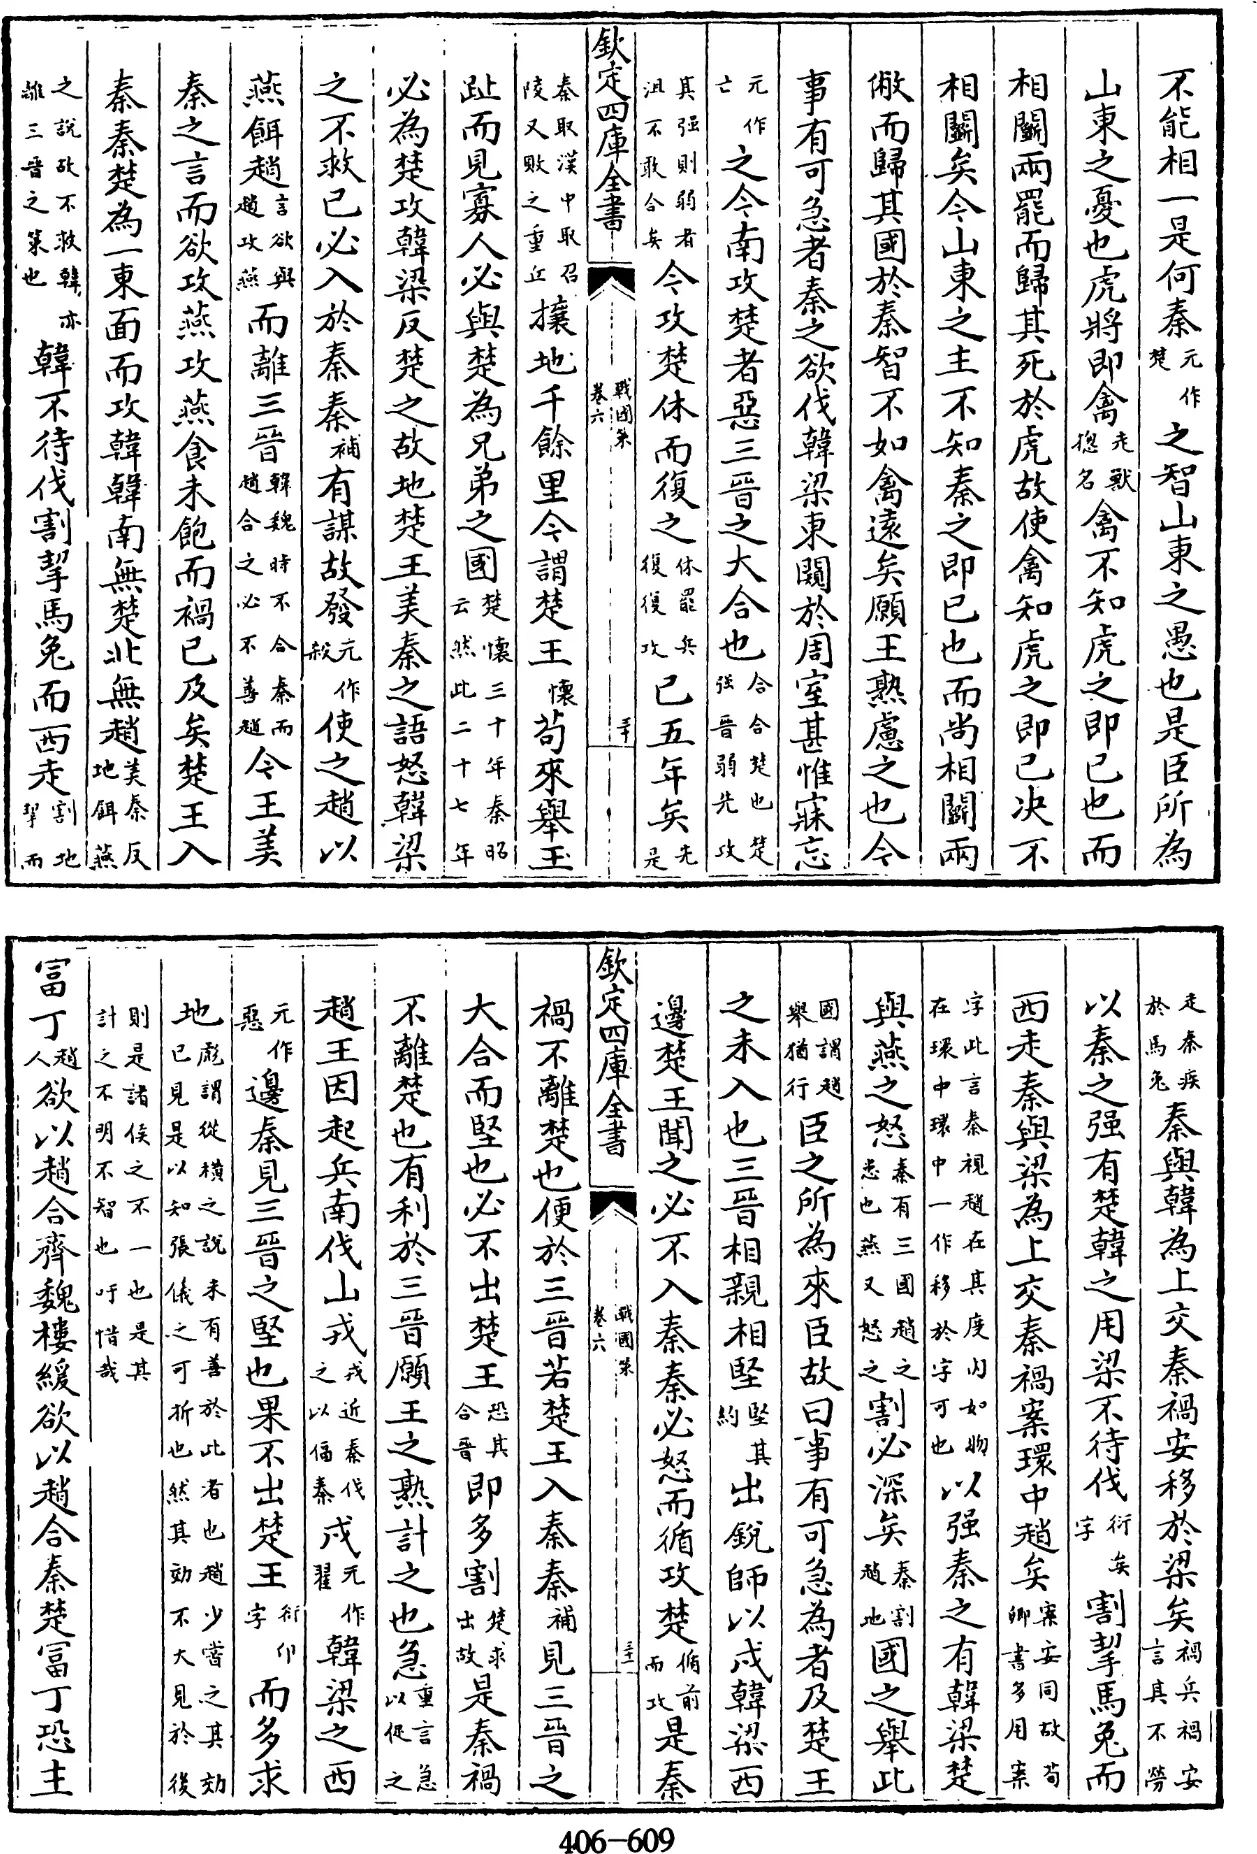 不能相一是何秦元作楚之智山東之愚也是臣所為
山東之憂也虎將即禽走獸揔名禽不知虎之即已也而
相鬭兩罷而歸其死於虎故使禽知虎之即已决不
相鬭矣今山東之主不知秦之即已也而尚相鬭兩
敝而歸其國於秦智不如禽遠矣願王熟慮之也今
事有可急者秦之欲伐韓梁東闚於周室甚惟寐忘
元作亡之今南攻楚者惡三晉之大合也合合楚也楚强晉弱先攻
其强則弱者沮不敢合矣今攻楚休而復之休罷兵復復攻已五年矣先是
欽定四庫全書
戰國策卷六
三十
秦取漢中取召陵又敗之重丘攘地千餘里今謂楚王懷茍來舉玉
趾而見寡人必與楚為兄弟之國楚懷三十年秦昭云然此二十七年
必為楚攻韓梁反楚之故地楚王美秦之語怒韓梁
之不救已必入於秦秦補有謀故發元作殺使之趙以
燕餌趙言欲與趙攻燕而離三晉韓魏時不合秦而趙合之必不善趙今王美
秦之言而欲攻燕攻燕食未飽而禍已及矣楚王入
秦秦楚為一東面而攻韓韓南無楚北無趙美秦反地餌燕
之說故不救韓亦離三晉之策也韓不待伐割挈馬兔而西走割地挈而
走秦疾於馬兔秦與韓為上交秦禍安移於梁矣禍兵禍安言其不勞
以秦之强有楚韓之用梁不待伐衍矣字割挈馬兔而
西走秦與梁為上交秦禍案環中趙矣案安同故荀卿書多用案
字此言秦視趙在其度内如物在環中環中一作移於字可也以强秦之有韓梁楚
與燕之怒秦有三國趙之恚也燕又怒之割必深矣秦割趙地國之舉此
國謂趙舉猶行臣之所為來臣故曰事有可急為者及楚王
之未入也三晉相親相堅堅其約出銳師以戍韓梁西
邊楚王聞之必不入秦秦必怒而循攻楚循前而攻是秦
欽定四庫全書
戰國策卷六
三十一
禍不離楚也便於三晉若楚王入秦秦補見三晉之
大合而堅也必不出楚王恐其合晉即多割楚求出故是秦禍
不離楚也有利於三晉願王之熟計之也急重言急以促之
趙王因起兵南伐山戎戎近秦伐之以偪秦戍元作翟韓梁之西
元作惡邊秦見三晉之堅也果不出楚王衍卬字而多求
地彪謂從横之說未有善於此者也趙少嘗之其効已見是以知張儀之可折也然其効不大見於後
則是諸侯之不一也是其計之不明不智也吁惜哉
富丁趙人欲以趙合齊魏樓緩欲以趙合秦楚富丁恐主
406-609